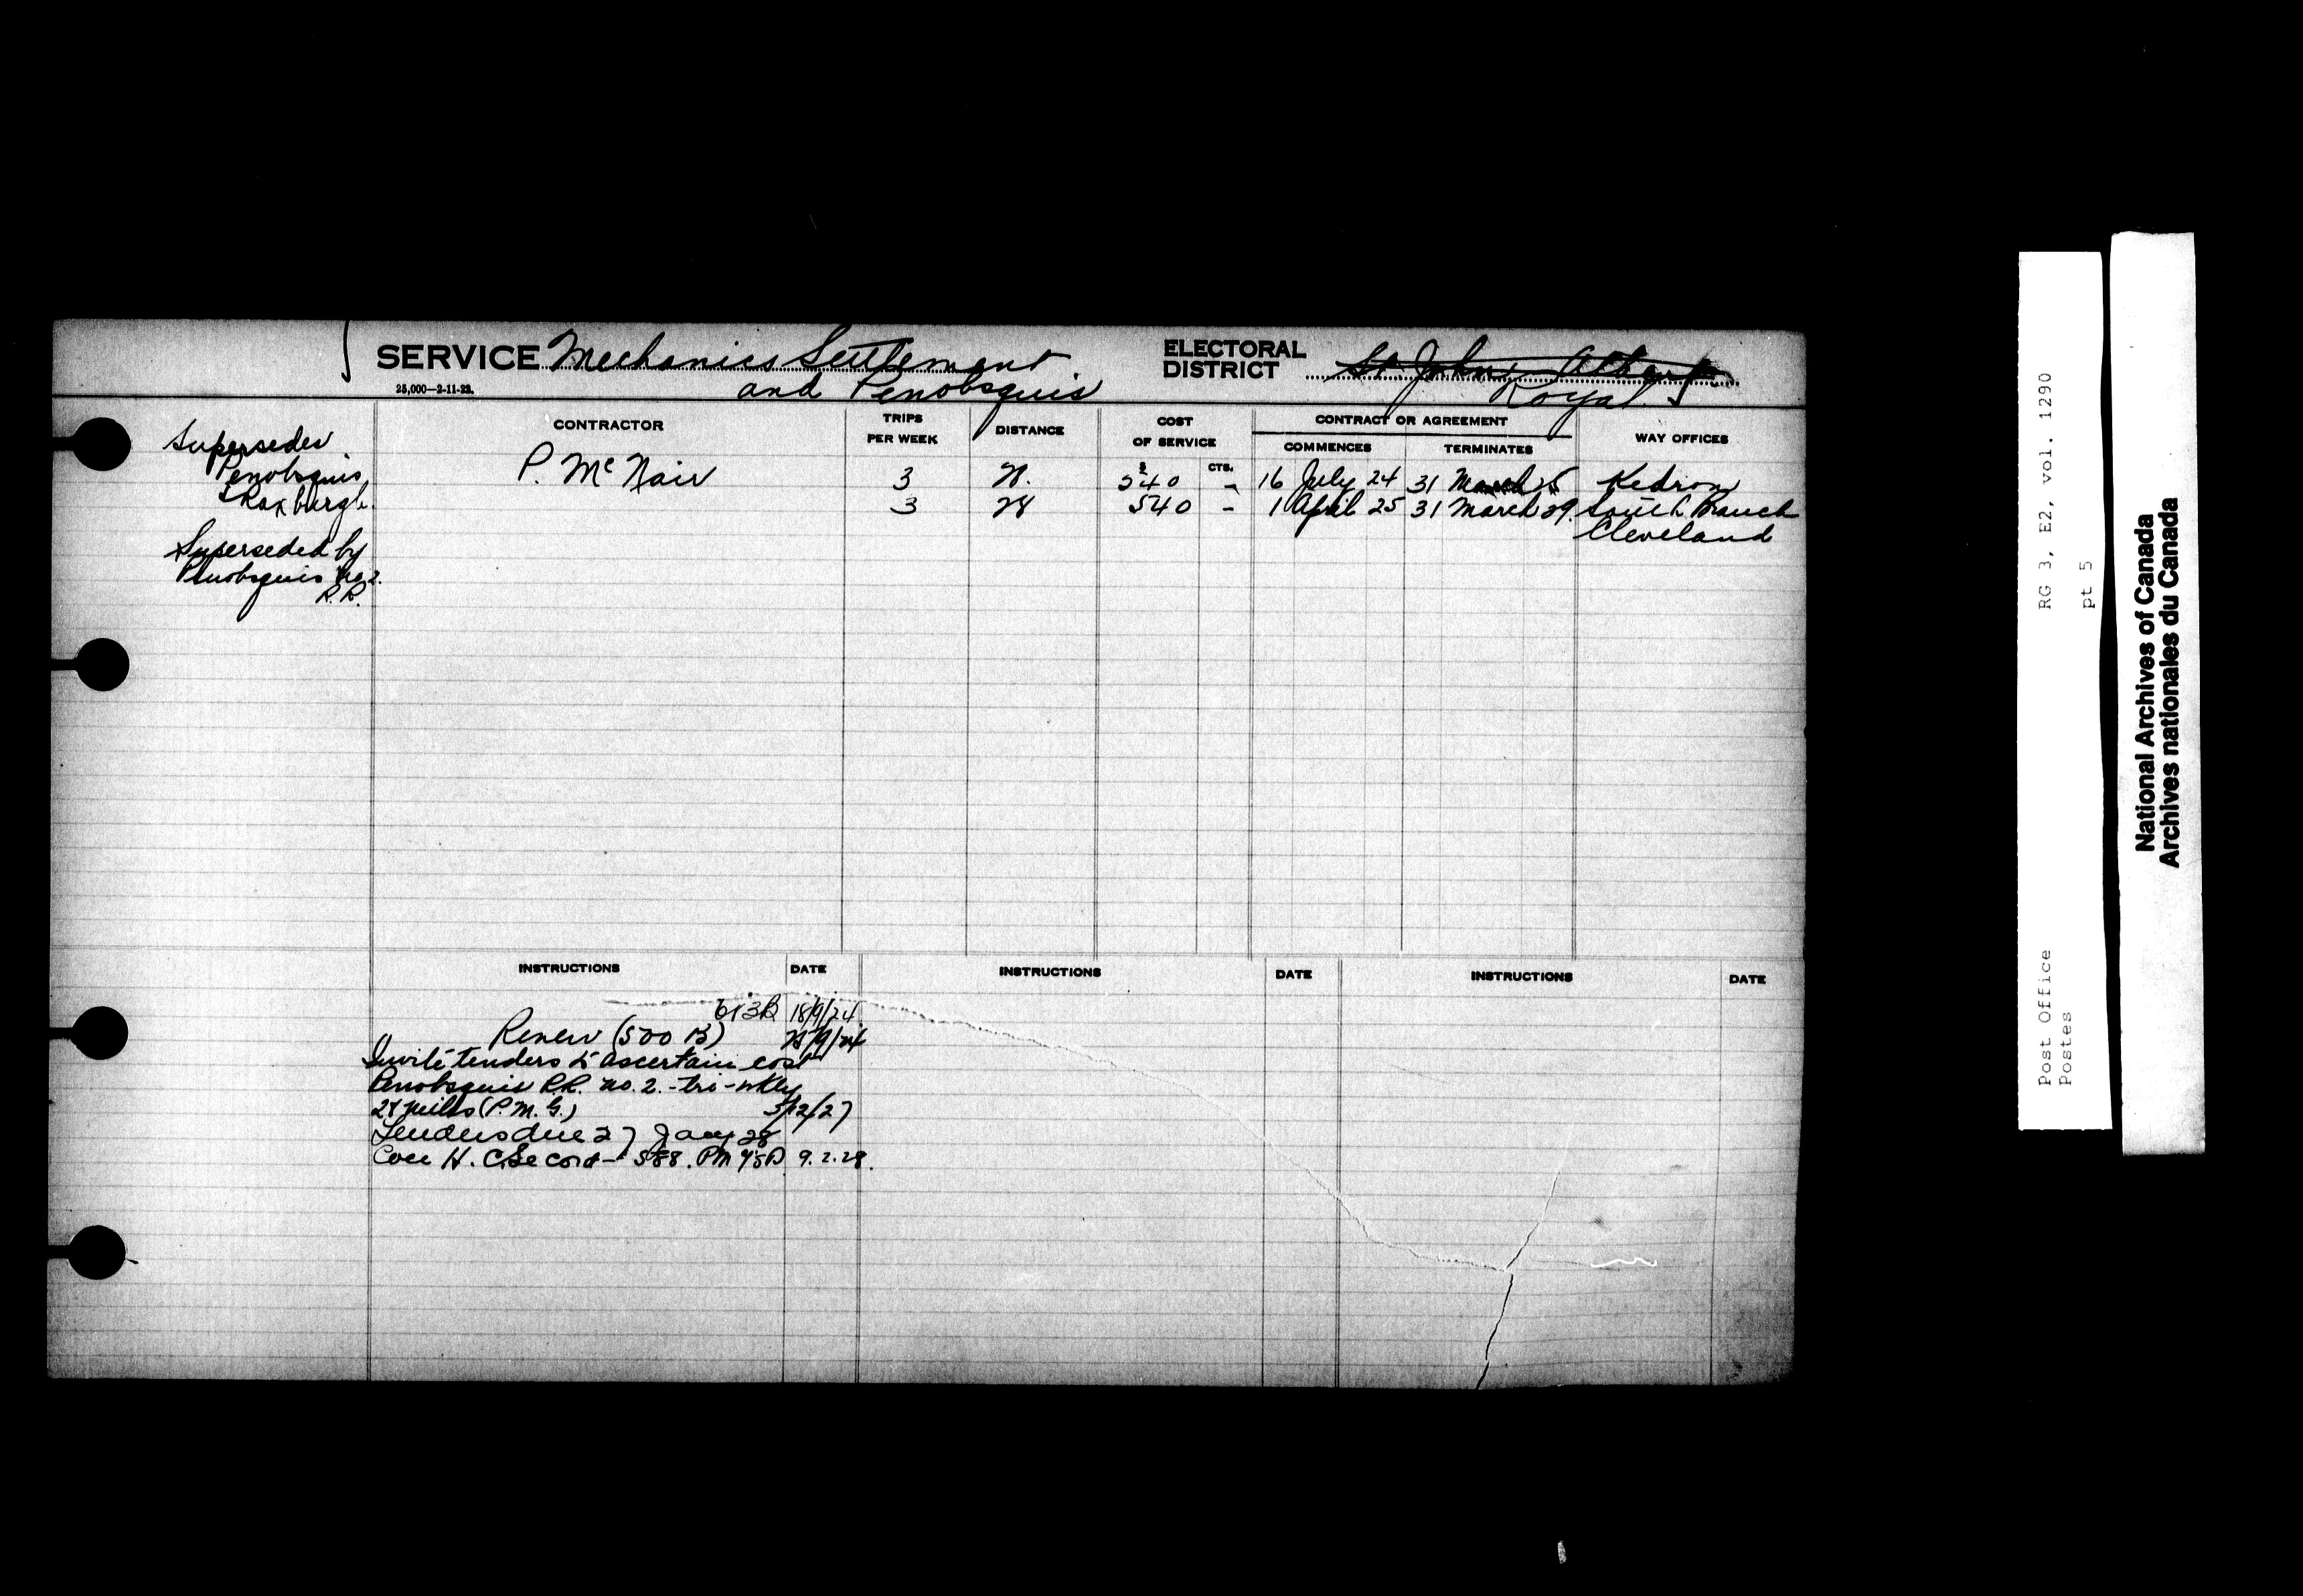 SERVICE Mechanics Settlement
and Penobsquis
25,000—2-11-23.
ELECTORAL
DISTRICT St John & Albert
Royal
Supersedes
Penobsquis
& Roxburgh.
Superseded by
Penobsquis No 2.
R.R.
CONTRACTOR
TRIPS
PER WEEK
DISTANCE
COST
OF SERVICE
$ CTS.
CONTRACT OR AGREEMENT
COMMENCES TERMINATES
WAY OFFICES
P. McNair 3 28. 540 - 16 July 24 31 March 25 Kedron
3 28 540 - 1 April 25 31 March 29. South Branch
Cleveland
INSTRUCTIONS DATE INSTRUCTIONS DATE INSTRUCTIONS DATE
613B 18/9/24
Renew (500 B) /9/24
Invite tenders to ascertain cost
Penobsquis R.R. no. 2. - tri-wkly
28 miles (P.M.G.) 5/12/27
Tenders due 27 Jany 28
H. C. Secord - 588. PM 9.2.28.
RG 3, E2, vol. 1290
pt 5
Post Office
Postes
National Archives of Canada
Archives nationales du Canada